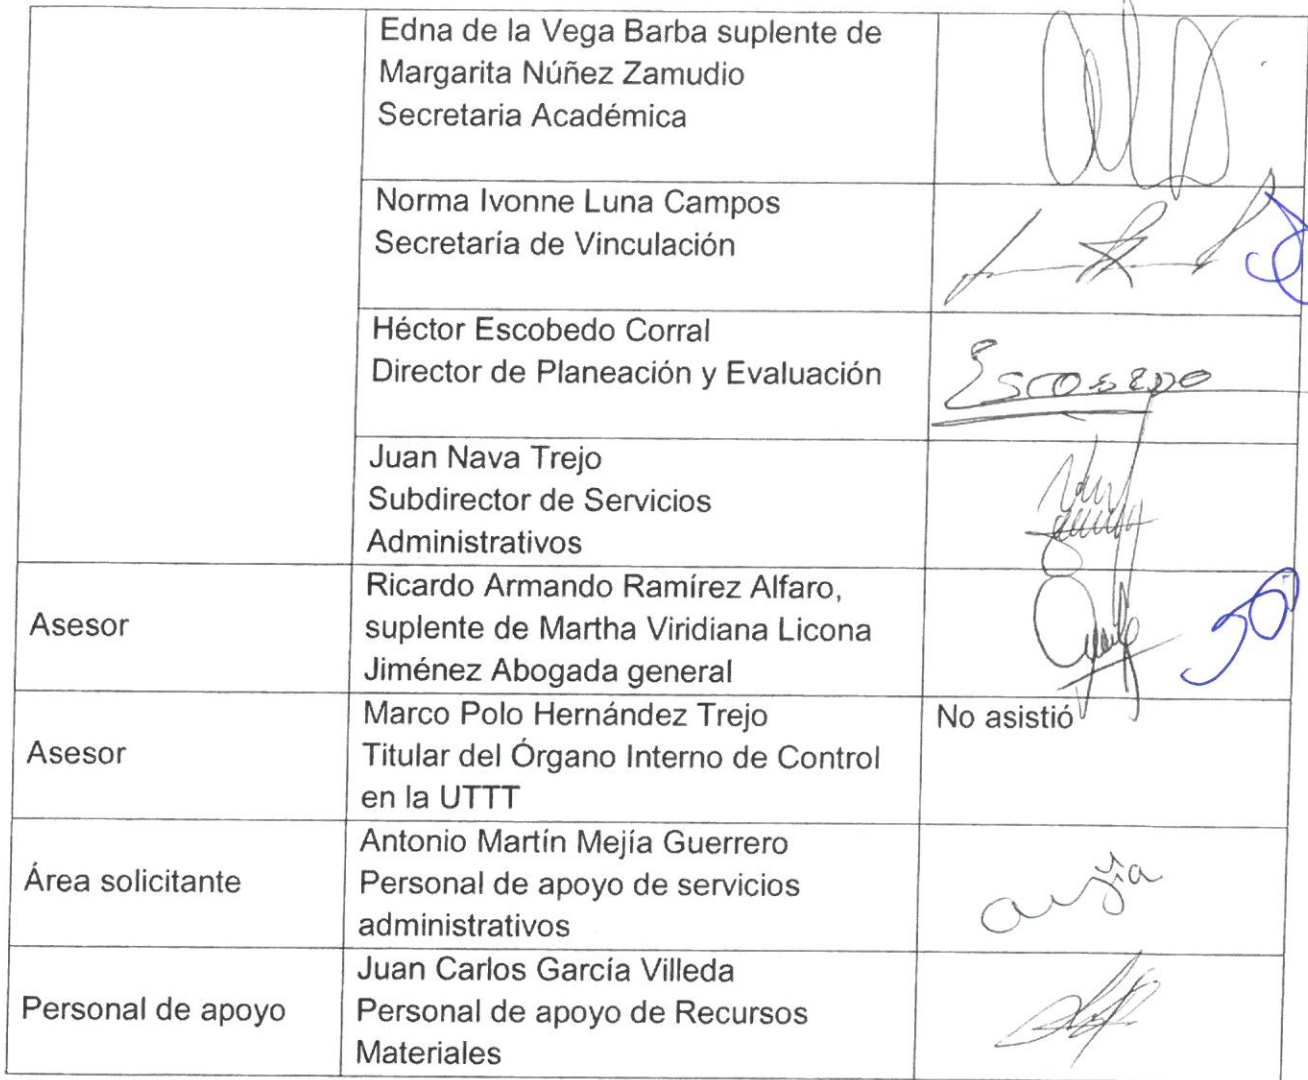 Edna de la Vega Barba suplente de
Margarita Núñez Zamudio
Secretaria Académica
Norma Ivonne Luna Campos
Secretaría de Vinculación
Héctor Escobedo Corral
Director de Planeación y Evaluación
Escobedo
Juan Nava Trejo
Subdirector de Servicios
Administrativos
Asesor
Ricardo Armando Ramírez Alfaro,
suplente de Martha Viridiana Licona
Jiménez Abogada general
Asesor
Marco Polo Hernández Trejo
Titular del Órgano Interno de Control
en la UTTT
No asistió
Área solicitante
Antonio Martín Mejía Guerrero
Personal de apoyo de servicios
administrativos
Personal de apoyo
Juan Carlos García Villeda
Personal de apoyo de Recursos
Materiales